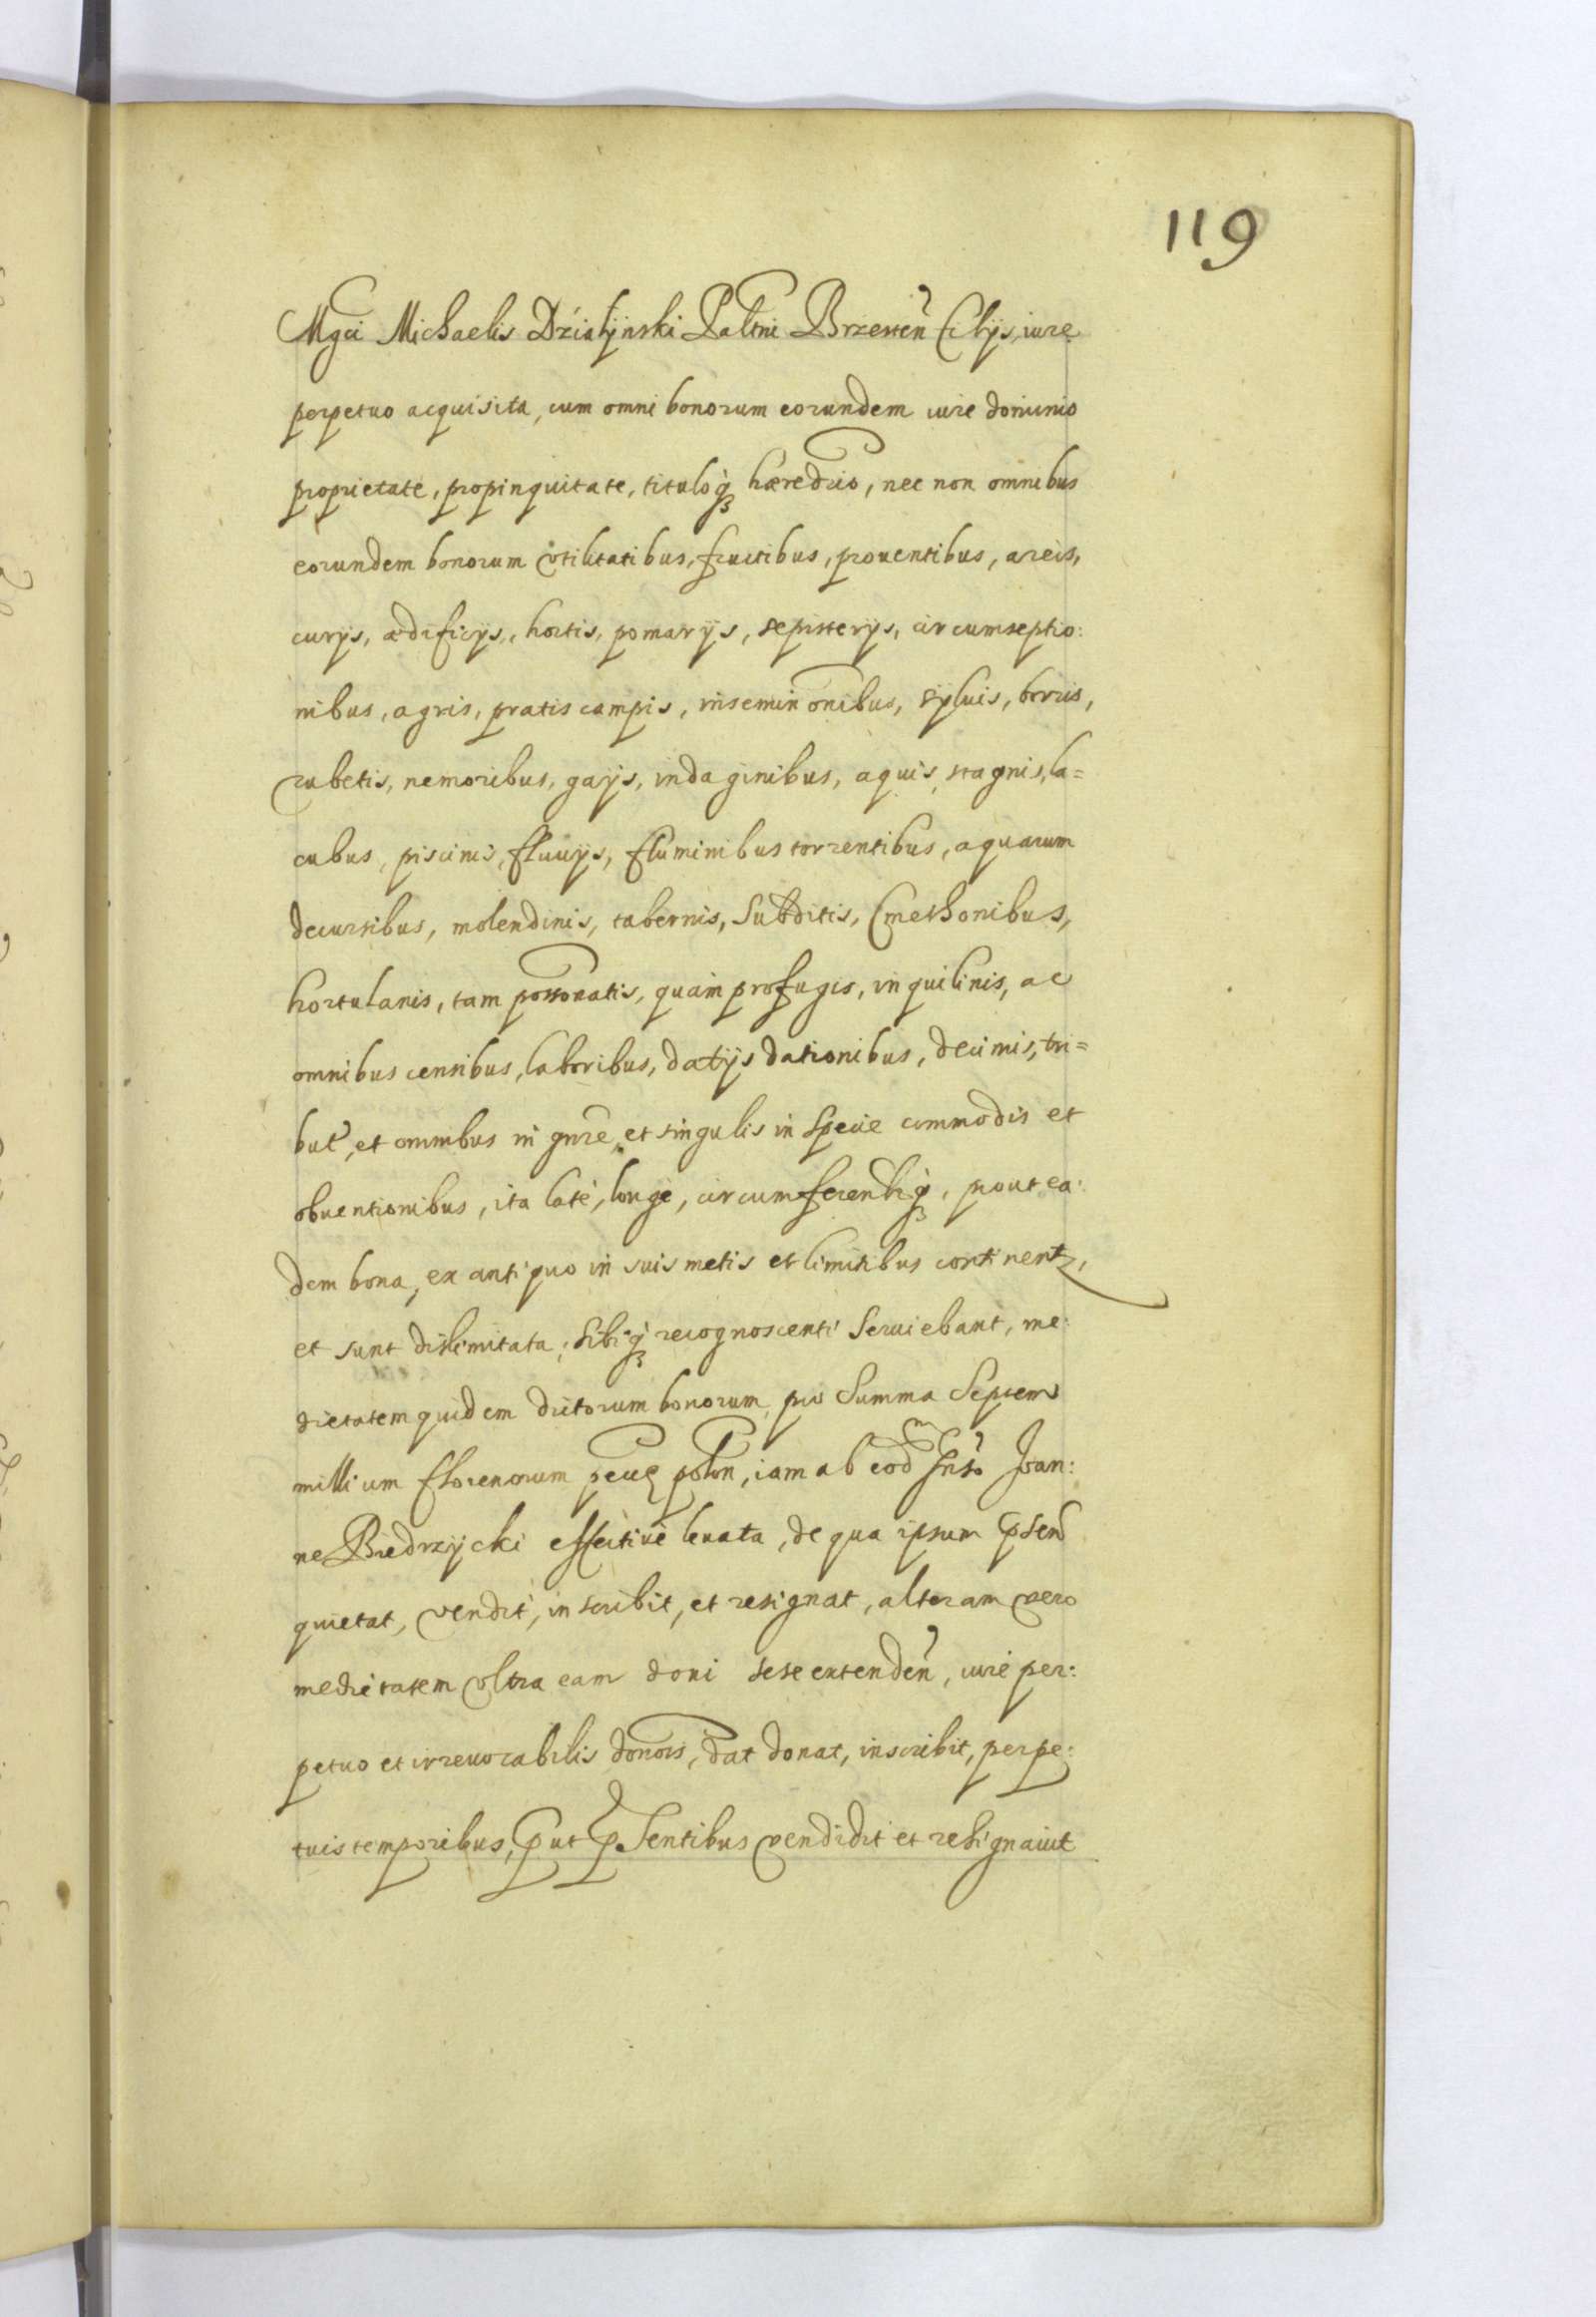 119
Mgci Michaelis Dzialÿnski Paltni Brzesteñ filÿs, iure
perpetuo acquisita, cum omni bonorum eorundem iure dominio
proprietate, propinquitate, tituloq3 hæredrio, nec non omnibus
eorundem bonorum vtilitatibus, fructibus, prouentibus, areis,
curÿs, ædificÿs, hortis, pomarÿs, sepisterÿs, circumseptio:
nibus, agris, pratis campis, inseminonibus, sÿluis, borris,
rubetis, nemoribus, gaÿs, indaginibus, aquis, stagnis, la=
cubus, piscinis, fluuÿs, fluminibus torrentibus, aquarum
decursibus, molendinis, tabernis, Subditis, Cmethonibus,
hortulanis, tam possonatis, quam profugis, inquilinis, ac
omnibus censibus, laboribus, datÿs dationibus, decimis, tri=
but, et omnibus in gnre, et singulis in specie commodis et
obuentionibus, ita laté, longé, circumferentiq3, prout ea:
dem bona, ex antiquo in suis metis et limitibus continent,
et sunt dislimitata; sibiq3 recognoscenti seruiebant, me:
dietatem quidem dictorum bonorum, pro Summa Septem
millium florenorum pecuę polon, iam ab eodm Gnso Joan:
ne Biedrzÿcki effectiué leuata, de qua ipsum psen
quietat, vendit, inscribit, et resignat, alteram vero
medietatem vltra eam doni sese extendeñ, iure per:
petuo et irreuocabilis donois, dat donat, inscribit, perpe:
tuis temporibus, put psentibus vendidit et resignauit